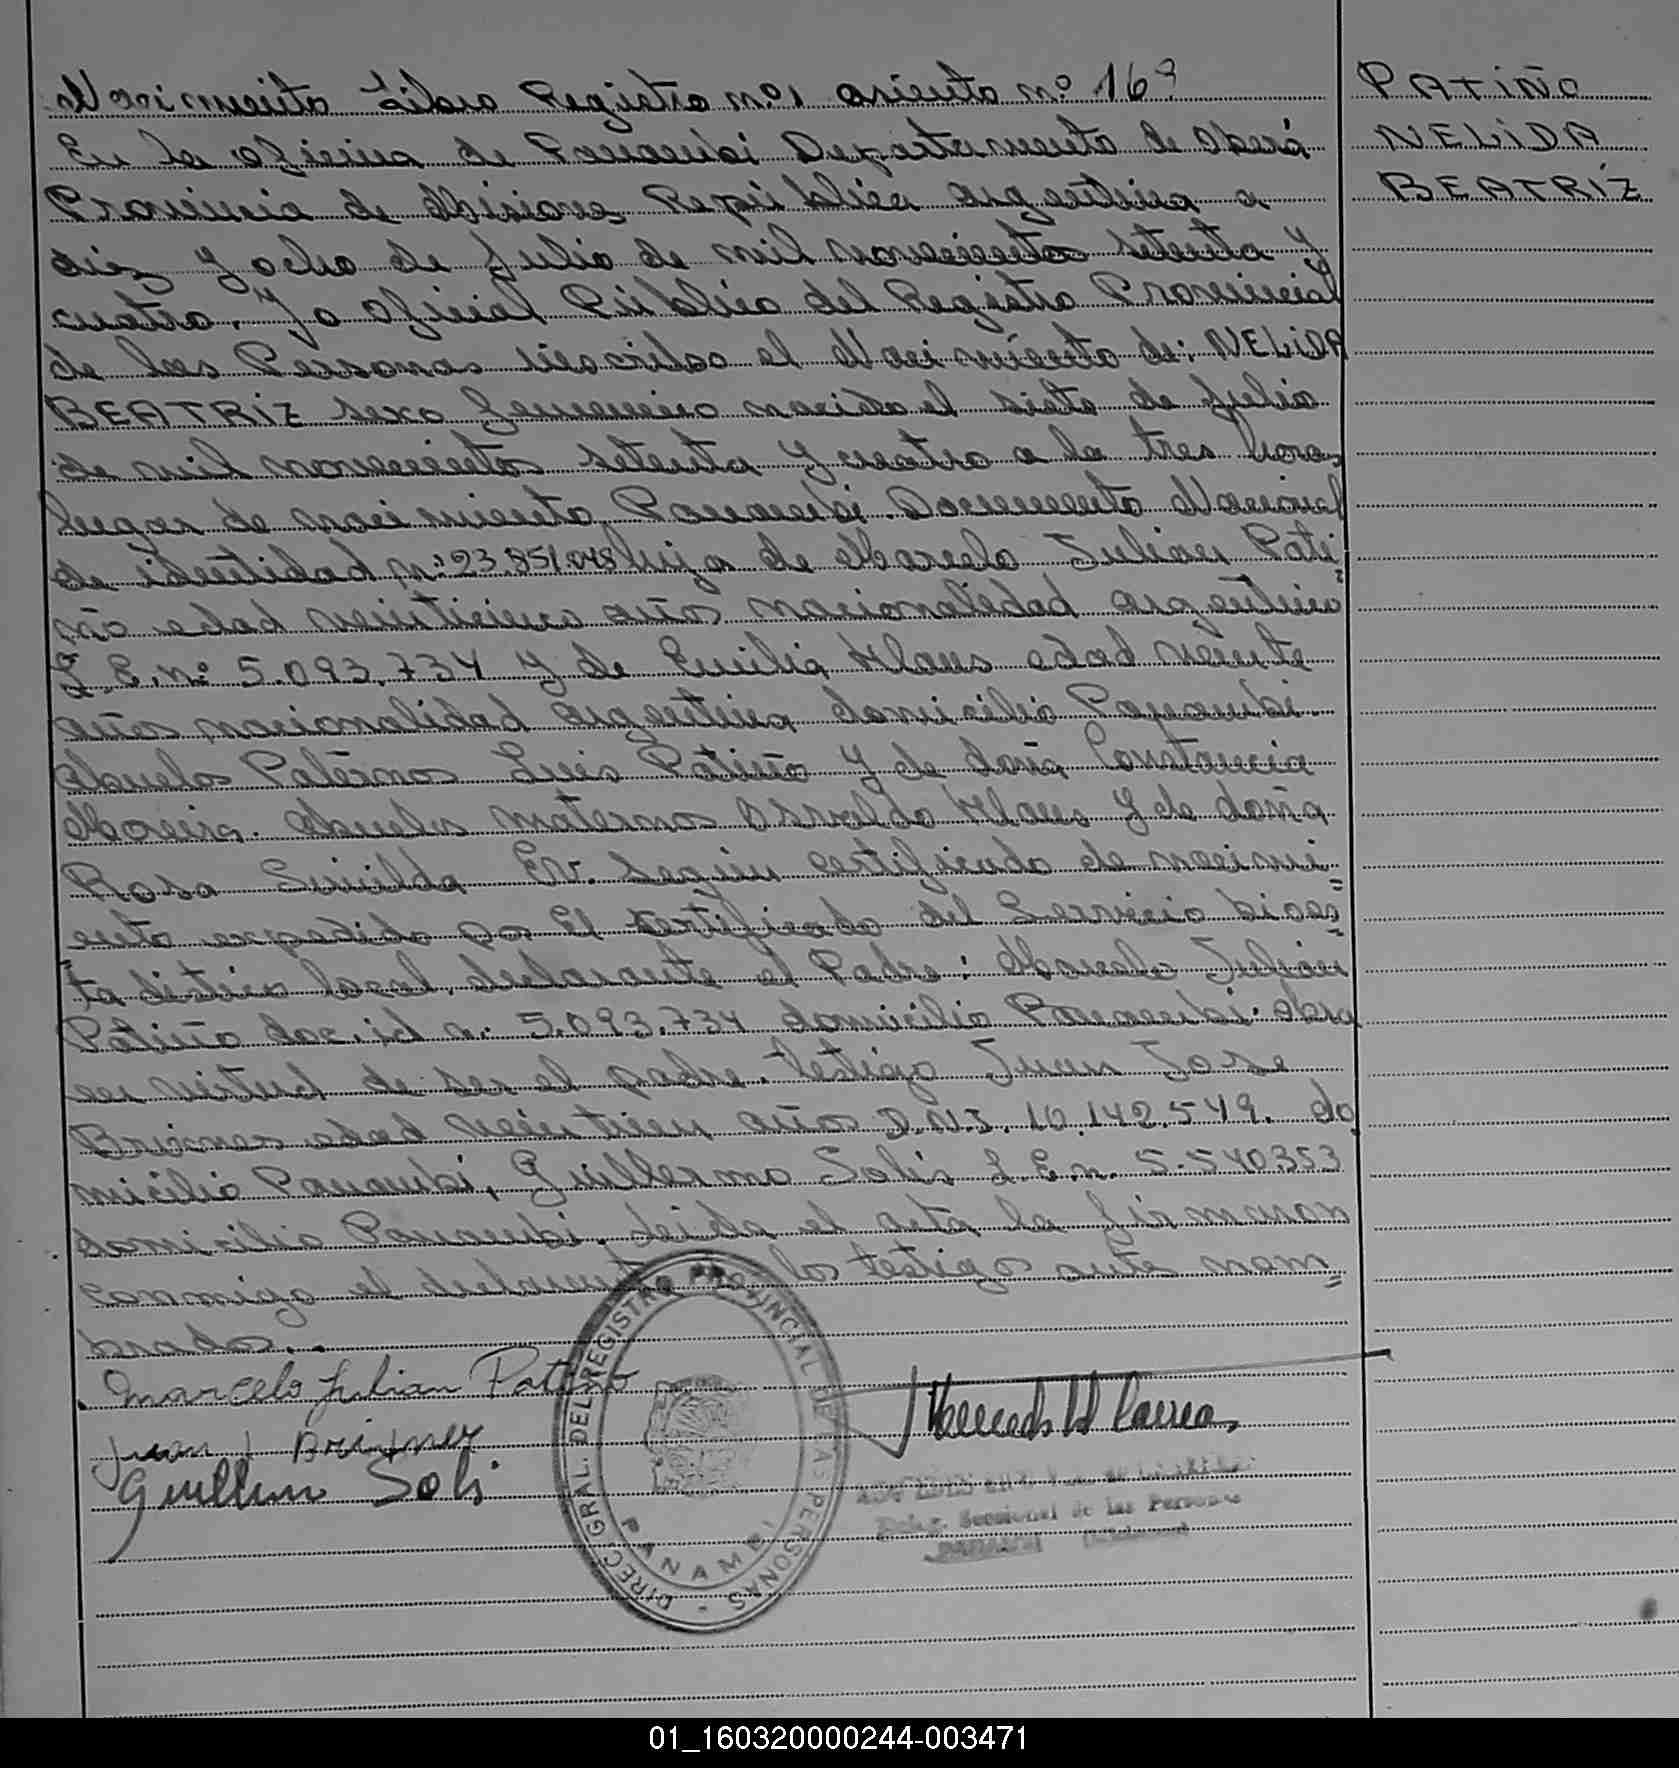 Nacimiento Libro Registro nº1 asiento nº 169
En la oficina de Panambi Departamento de Oberá
Provincia de Misiones Republica argentina a
diez y ocho de Julio de mil novecientos setenta y
cuatro. Yo Oficial Público del Registro Provincial
de las Personas inscribo el Nacimiento de: NELIDA
BEATRIZ sexo femenino nacida el siete de Julio
de mil novecientos setenta y cuatro a la tres horas
lugar de nacimiento Panambi. Documento Nacional
de identidad n: 23.851.048 hija de Marcelo Julian Pati=
ño edad veinticinco años nacionalidad argentino
L.E.n: 5.093.734 y de Emilia Klaus edad veinte
años nacionalidad argentina domicilio Panambi.
Abuelos Paternos Luis Patiño y de doña Constancia
Abuelos maternos Osvaldo Klaus y de doña
Rosa Según certificado de nacimi=
ento expedido por El certificado del Servicio bioes=
tadistico local. declarante el Padre: Marcelo Julian
Patiño doc. id n: 5.093.734 domicilio Panambi. Obra
en virtud de ser el padre. testigo Juan Jose
Brixner edad años D.N.I. 10.142.549. do
micilio Panambi, Guillermo Solis L.E.n. 5.540.353
domicilio Panambi. leida el acta la firmaron
conmigo el declarante los testigos antes nom=
brados..
Marcelo Julian Patiño
Juan J Brixner
Guillermo Solis
DIREC. GRAL. DEL REGISTRO PROVINCIAL DE LAS PERSONAS -
PANAMBI
Seccional de las Personas
PANAMBI
PATIÑO
NELIDA
BEATRIZ
01_160320000244-003471